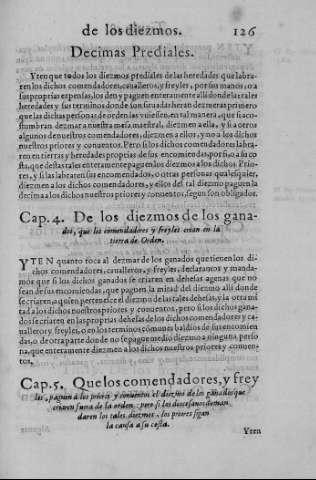 de los diezmos. 126
Decimas Prediales.
Yten que todos los diezmos prediales de las heredades que labra-
ren los dichos comendadores, caualleros, y freyles, por sus manos, o a
sus proprias espensas, los den y paguen enteramente alli donde las tales
heredades y sus terminos donde son situadas heran dezmeras primero
que las dichas personas de orden las vuiesen, en tal manera, que si aco-
stumbran dezmar a nuestra mesa maestral, diezmen a ella, y si a otros
algunos de nuestros comendadores, diezmen a ellos, y no a los dichos
nuestros priores y conuentos. Pero si los dichos comendadores labra-
ren en tierras y heredades proprias de sus encomiendas por si, o a su co
sta, que destas tales enteramente paguen los diezmos a los dichos Prio-
res, y si las labraren sus encomendados, o otras personas qualesquier,
diezmen a los dichos comendadores, y ellos del tal diezmo paguen la
decima a los dichos nuestros priores y conuentos, segun son obligados.
Cap. 4. De los diezmos de los gana-
dos, que los comendadores y freyles crian en la
tierra de Orden.
YTEN quanto toca al dezmar de los ganados que tienen los di-
chos comendadores, caualleros, y freyles, declaramos y manda-
mos que si los dichos ganados se criaren en dehesas agenas que no
sean de sus encomiendas, que paguen la mitad del diezmo alli donde
se criaren, a quien pertenesce el diezmo de las tales dehesas, y la otra mi
tad a los dichos nuestros priores y conuentos, pero si los dichos gana-
dos se criaren en las proprias dehesas de los dichos comendadores y ca-
ualleros y freyles, o en los terminos comunes baldios de sus encomien
das, o de otra parte donde no se pague medio diezmo a ninguna perso
na, que enteramente diezmen a los dichos nuestros priores y conuen-
tos.
Cap. 5. Que los comendadores, y frey
les, paguen a los priores y conuentos el diezmo de los ganados que
criaren fuera de la orden: pero si los diocesanos deman
daren los tales diezmos, los priores sigan
la causa a su costa.
Yten